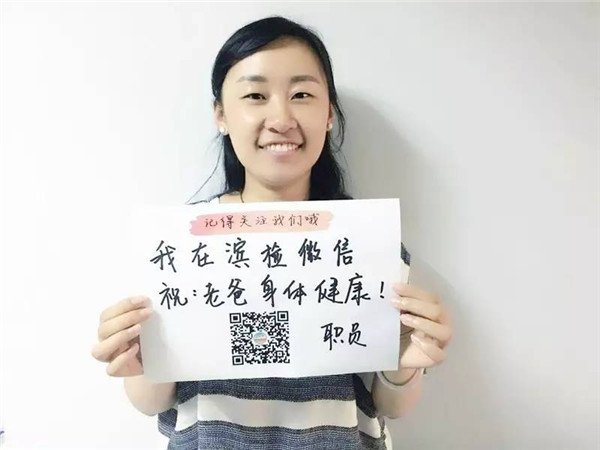 记得关注我们哦
我在滨检微信
祝:老爸身体健康!
职员